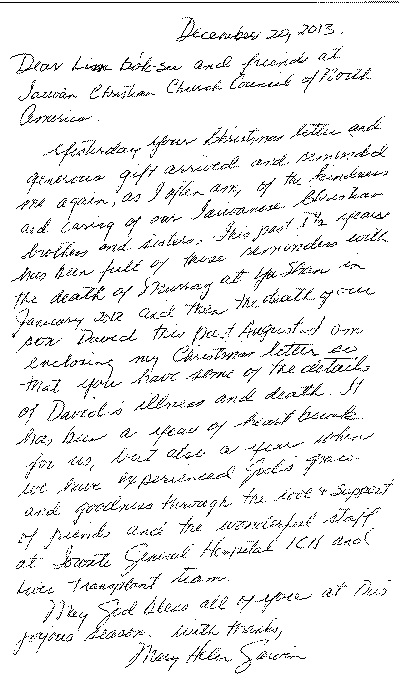 December 20, 2013.
Dear Lim Bok-su and friends at
Taiwan Christian Church Council of North
America.
Yesterday your Christmas letter and
generous gift arrived and reminded
me again, as I often am, of the kindness
and caring of our Taiwanese Christian
brothers and sisters. This past 1½ years
has been full of those reminders with
the death of Murray at Yu-Shan in
January 2012 and then the death of our
son David this past August. I am
enclosing my Christmas letter so
that you have some of the details
of David's illness and death. It
has been a year of heart break
for us, but also a year when
we have experienced God's grace
and goodness through the love & support
of friends and the wonderful staff
at General Hospital ICU and
liver transplant team.
May God bless all of you at this
joyous season. With thanks,
Mary Helen